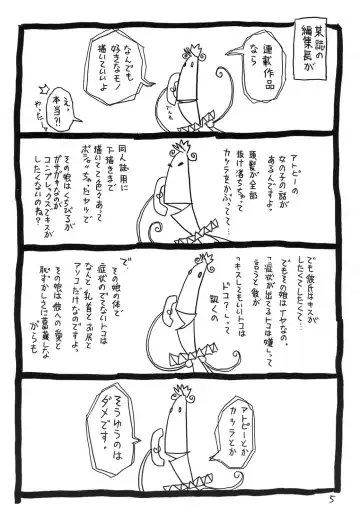 某誌の
編集長が
連載作品
なら
なんでも
好きなモノ
描いていいよ
え、
本当?!
やったー
アトピーの
女の子の話が
あるんですよ。
頭髪が全部
抜け落ちちゃって
カツラをかぶってて…
同人誌用に
下描きまで
描いてて色々あって
ボシャっちゃったヤツで
その娘はくちびるが
ガサガサなのが
コンプレックスでキスが
したくないのね?
でも彼氏はキスが
したくてしたくて、
でもその娘はイヤなの。
「症状が出てるトコは嫌」って
言うと彼が
「キスしてもいいトコは
ドコ?」って
訊くの
で
その娘の体で
症状のでてないトコは
なんと、乳首とお尻と
アソコだけなのですよ。
で
その娘は彼への愛と
恥ずかしさに葛藤しな
がらも
アトピーとか
カツラとか
そうゆうのは
ダメです。
5